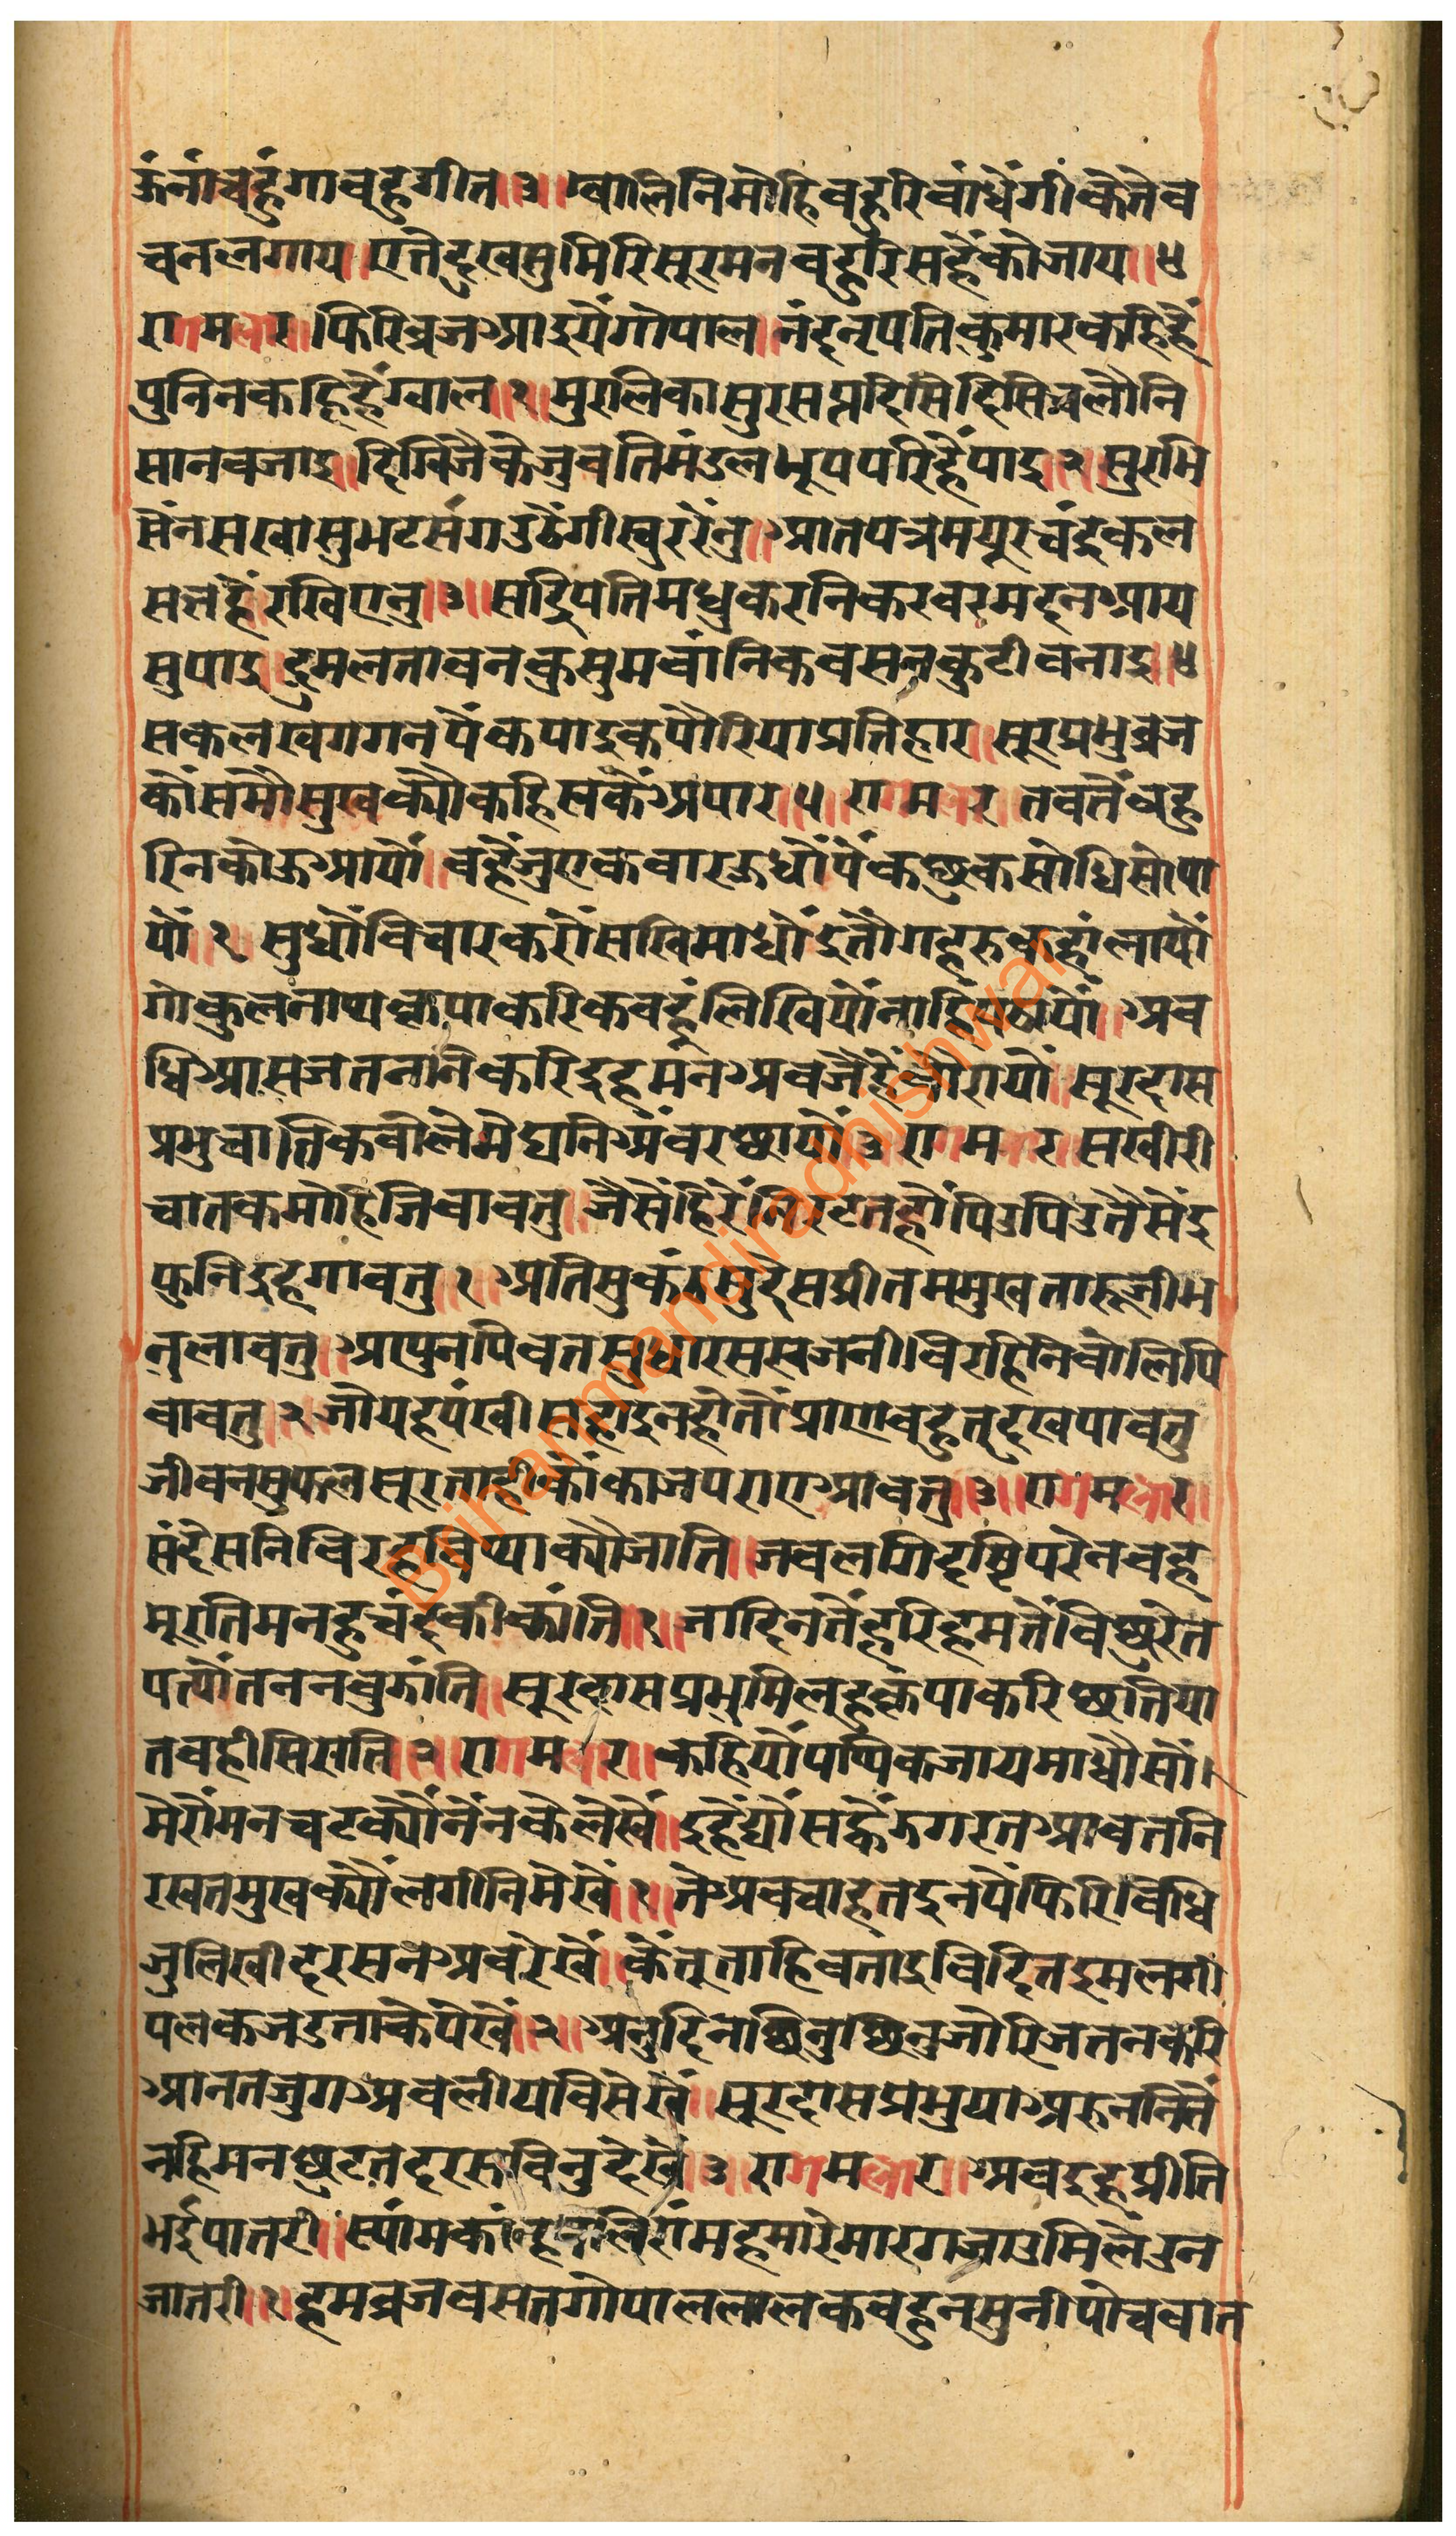 ऊंनांचहुंगावहुगीत॥३॥ग्वालिनिमोहिबहुरिबांधेंगीकेतेब
चनलगाय॥एतेदुखसुमिरिसूरमनबहुरिसहैंकोजाय॥४
रागमलार॥फिरिब्रजआइयेंगोपाल॥नंदनृपतिकुमारकहिहैं
पुनिनकहिहैंग्वाल॥१॥मुरलिकासुरसप्तदिसिदिसिचलौनि
सानबजाइ॥दिग्विजैकेंजुवतिमंडलभूपपरिहैंपाइ॥२॥सुरभि
सेंनसखासुभटसंगउठेंगीखुररेंनु॥आतपत्रमयूरचंदुकल
सतहैंरखिएनु॥३॥सद्विपतिमधुकरनिकरवरमदनआय
सुपाइ॥द्रुमलतावनकुसुमबांनिकबसनकुटीबनाइ॥४
सकलखगगनपैंकपाइकपौरियाप्रतिहार॥सूरप्रभुब्रज
कौंसमौसुखक्यौंकहिसकैंअपार॥५॥रागमलार॥तबतेंबहु
रिनकोऊआयौं॥वहैजुएकबारऊधौंपेंकछुकसोधिसोपा
यौं॥१॥सुधौंविचारकरौंसखिमाधौंइतौगहरुकहांलायौं
गोकुलनाथकृपाकरिकबहूंलिखियौंनाहिंपठायौं॥अव
धिआसजतनानेकरिदुहमनअबजैहैंबौरायौं॥सूरदास
प्रभुचातिकबोलेमेघनिअंबरछायौं॥३॥रागमलार॥सखीरी
चातकमोहिजिवावतु॥जैसेंहिरेंनिरटतहौंपिउपिउतैसेंइ
फुनिदुहगावतु॥१॥अतिसुकंठसुदेसप्रीतममुखतारूजीभ
नलावतु॥आपुनपिवतसुधारससजनीविरहिनिबोलिपि
वावतु॥२॥जोयहपंखीसहाइनहोतौप्राणबहुतदुखपावतु
जीवनसुफलसूरताहीकौंकाजपराएआवतु॥३॥रागमलार॥
संदेसनिविरहविथाक्यौंजाति॥जबलगिदृष्टिपरेनवह
मूरतिमनहुचंदकीकांति॥१॥जादिनतेंहरिहमतेंबिछुरेत
पत्यौंतननबुझांति॥सूरदासप्रभुमिलहुकृपाकरिछतिया
तबहीसिराति॥२॥रागमलार॥कहियौंपथिकजायमाधौसौं।
मेरोंमनचटक्यौंनेंनकेलेखैं॥दुहैंद्यौंसद्वैंझगरतआवतनि
रखतमुखक्यौंलगीनिमेखैं॥१॥तेअबचाहतदुनपेंफिरिबिधि
जुलिखीदरसनअवरेखैं॥केंतूताहिबताइविदितइमलगी
पलकजडताकेपेखैं॥२॥अनुदिनछिनुछिनुजोरिजतनकरि
आनतजुगअवलीयविसेखैं॥सूरदासप्रभुयाअरुननितें
नहिमनछुटतदरसबिनुदेखैं॥३॥रागमलार॥अबइहप्रीति
भईपातरी॥स्यांमकांन्हबलिरांमहमारेमारगजाउमिलेउन
जातरी॥१॥हमब्रजबसतगोपाललालकबहुनसुनीपोचबात